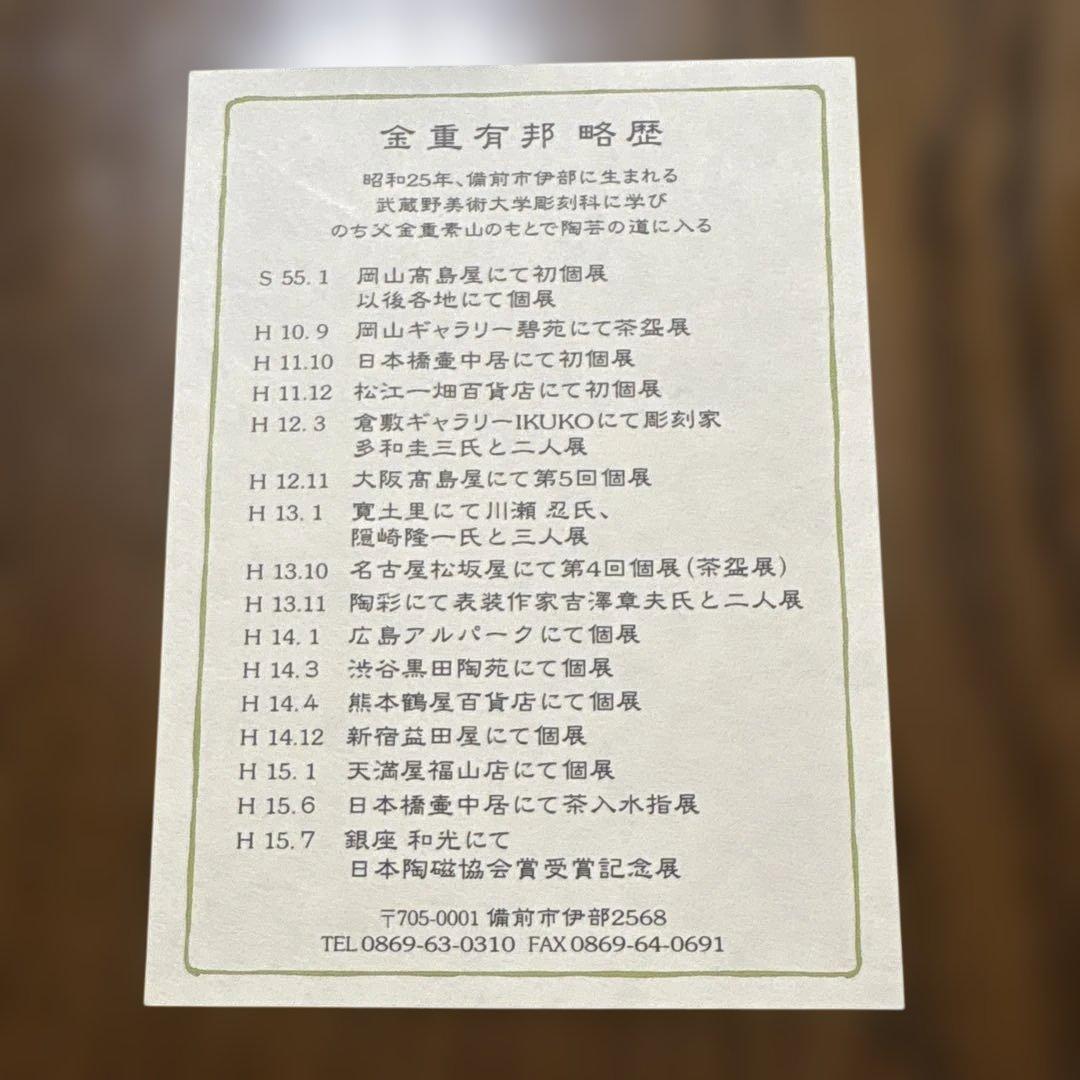 金重有邦 略歴
昭和25年、備前市伊部に生まれる
武蔵野美術大学彫刻科に学び
のち父金重素山のもとで陶芸の道に入る
S 55. 1 岡山髙島屋にて初個展
以後各地にて個展
H 10. 9 岡山ギャラリー碧苑にて茶盌展
H 11.10 日本橋壷中居にて初個展
H 11.12 松江一畑百貨店にて初個展
H 12. 3 倉敷ギャラリーIKUKOにて彫刻家
多和圭三氏と二人展
H 12.11 大阪髙島屋にて第5回個展
H 13. 1 寛土里にて川瀬 忍氏、
隠崎隆一氏と三人展
H 13.10 名古屋松坂屋にて第4回個展(茶盌展)
H 13.11 陶彩にて表装作家吉澤章夫氏と二人展
H 14. 1 広島アルパークにて個展
H 14. 3 渋谷黒田陶苑にて個展
H 14. 4 熊本鶴屋百貨店にて個展
H 14.12 新宿益田屋にて個展
H 15. 1 天満屋福山店にて個展
H 15. 6 日本橋壷中居にて茶入水指展
H 15. 7 銀座 和光にて
日本陶磁協会賞受賞記念展
〒705-0001 備前市伊部2568
TEL 0869-63-0310 FAX 0869-64-0691